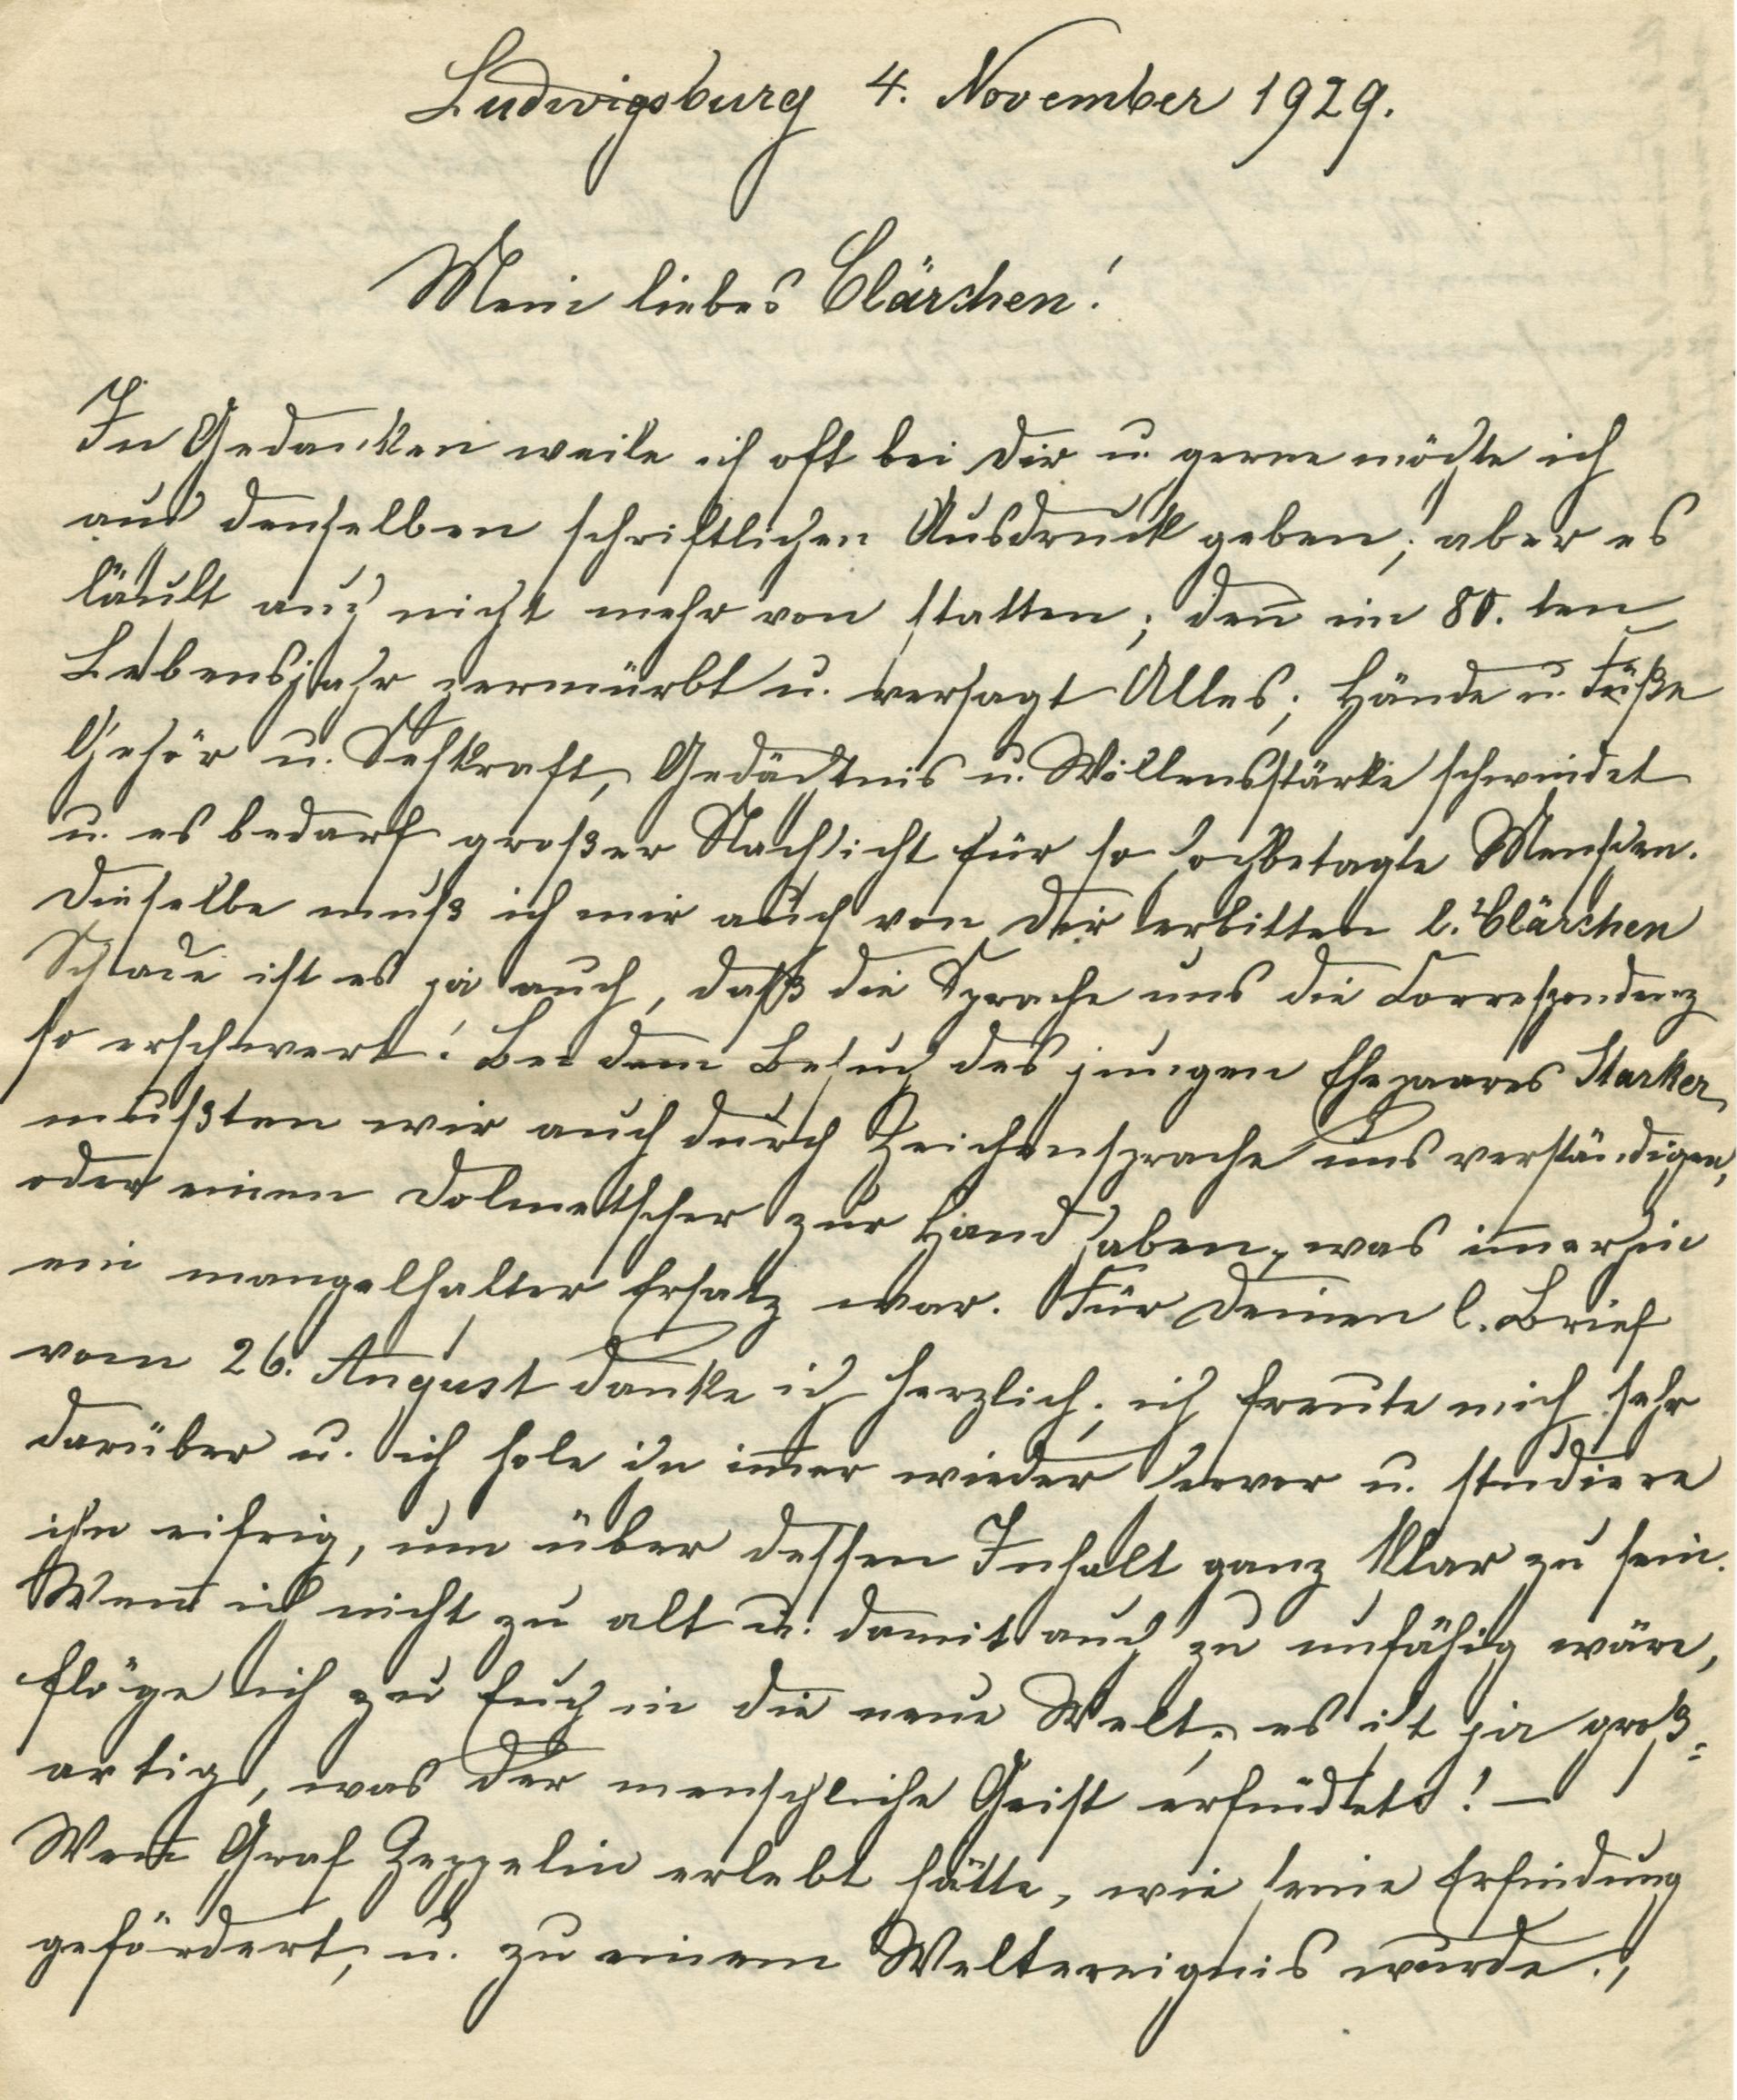 Ludwigsburg 4. November 1929.
Mein liebes Clärchen!
In Gedanken weile ich oft bei Dir u. gerne möchte ich
auch denselben schriftlichen Ausdruck geben; aber es
läuft auch nicht mehr von statten; den̅ im 80. ten
Lebensjahr zermürbt u. versagt Alles; Hände u. Füße
Gehör u. Sehkraft, Gedächtnis u. Willensstärke schwindet
u. es bedarf großer Nachsicht für so hochbetagte Menschen.
Dieselbe muß ich mir auch von Dir erbitten l. Clärchen
Schade ist es ja auch, daß die Sprache uns die Correspondenz
so erschwert! Bei dem Besuch des jungen Ehepaares Starker
mußten wir auch durch Zeichensprache uns verständigen,
oder einen Dolmetscher zur Hand haben, was im̅erhin
ein mangelhafter Ersatz war. Für Deinen l. Brief
vom 26. August danke ich herzlich; ich freute mich sehr
darüber u. ich hole ihn im̅er wieder hervor u. studiere
ihn eifrig, um über dessen Inhalt ganz klar zu sein.
Wen̅ ich nicht zu alt u. damit auch zu unfähig wäre,
flöge ich zu Euch in die neue Welt; es ist ja groß=
artig, was der menschliche Geist erfindet! —
Wen̅ Graf Zeppelin erlebt hätte, wie seine Erfindung
gefördert, u. zu einem Weltereignis wurde!